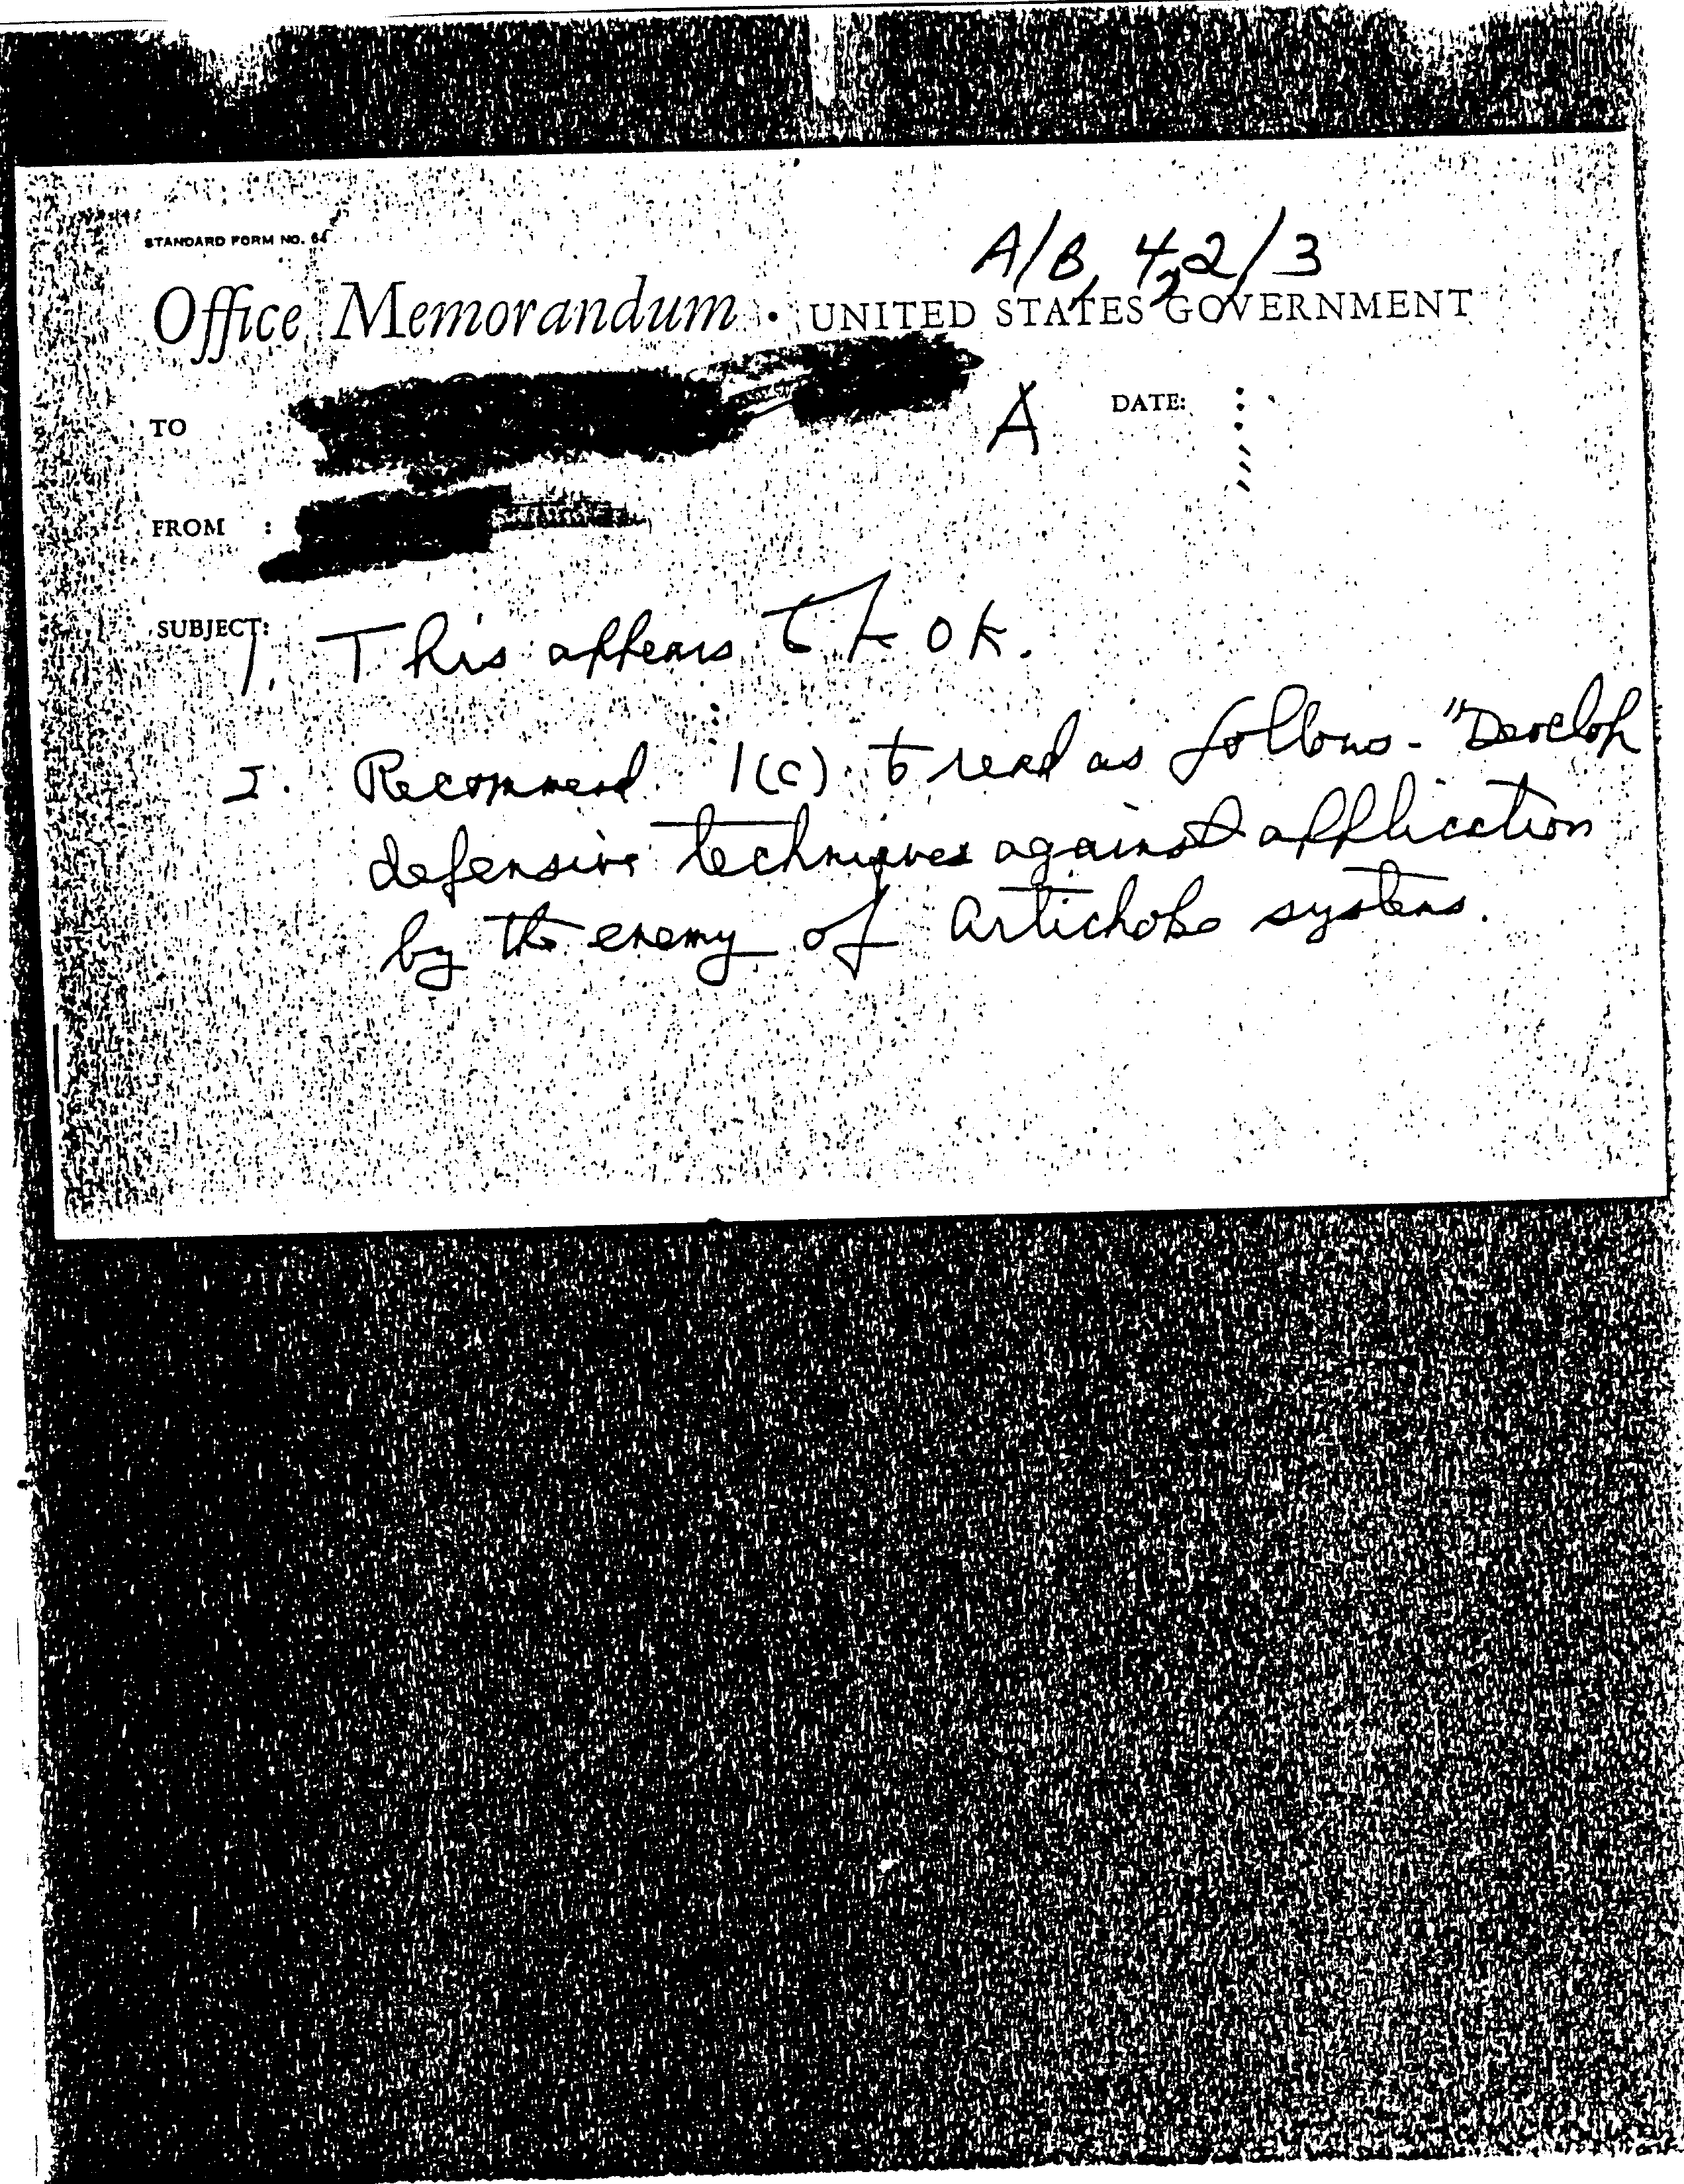 STANDARD FORM NO. 64
A/B, 4, 2/3
Office Memorandum • UNITED STATES GOVERNMENT
TO :
A
DATE:
FROM :
SUBJECT:
1. This appears to be OK.
2. Recommend 1(c) to read as follows - "Develop
defensive techniques against application
by the enemy of Artichoke systems.